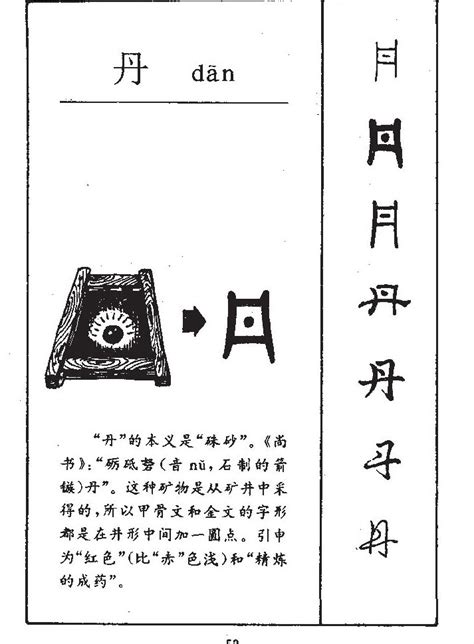 丹 dān
“丹”的本义是“硃砂”。《尚
书》：“砺砥砮（音 nǔ，石制的箭
镞）丹”。这种矿物是从矿井中采
得的，所以甲骨文和金文的字形
都是在井形中间加一圆点。引申
为“红色”（比“赤”色浅）和“精炼
的成药”。